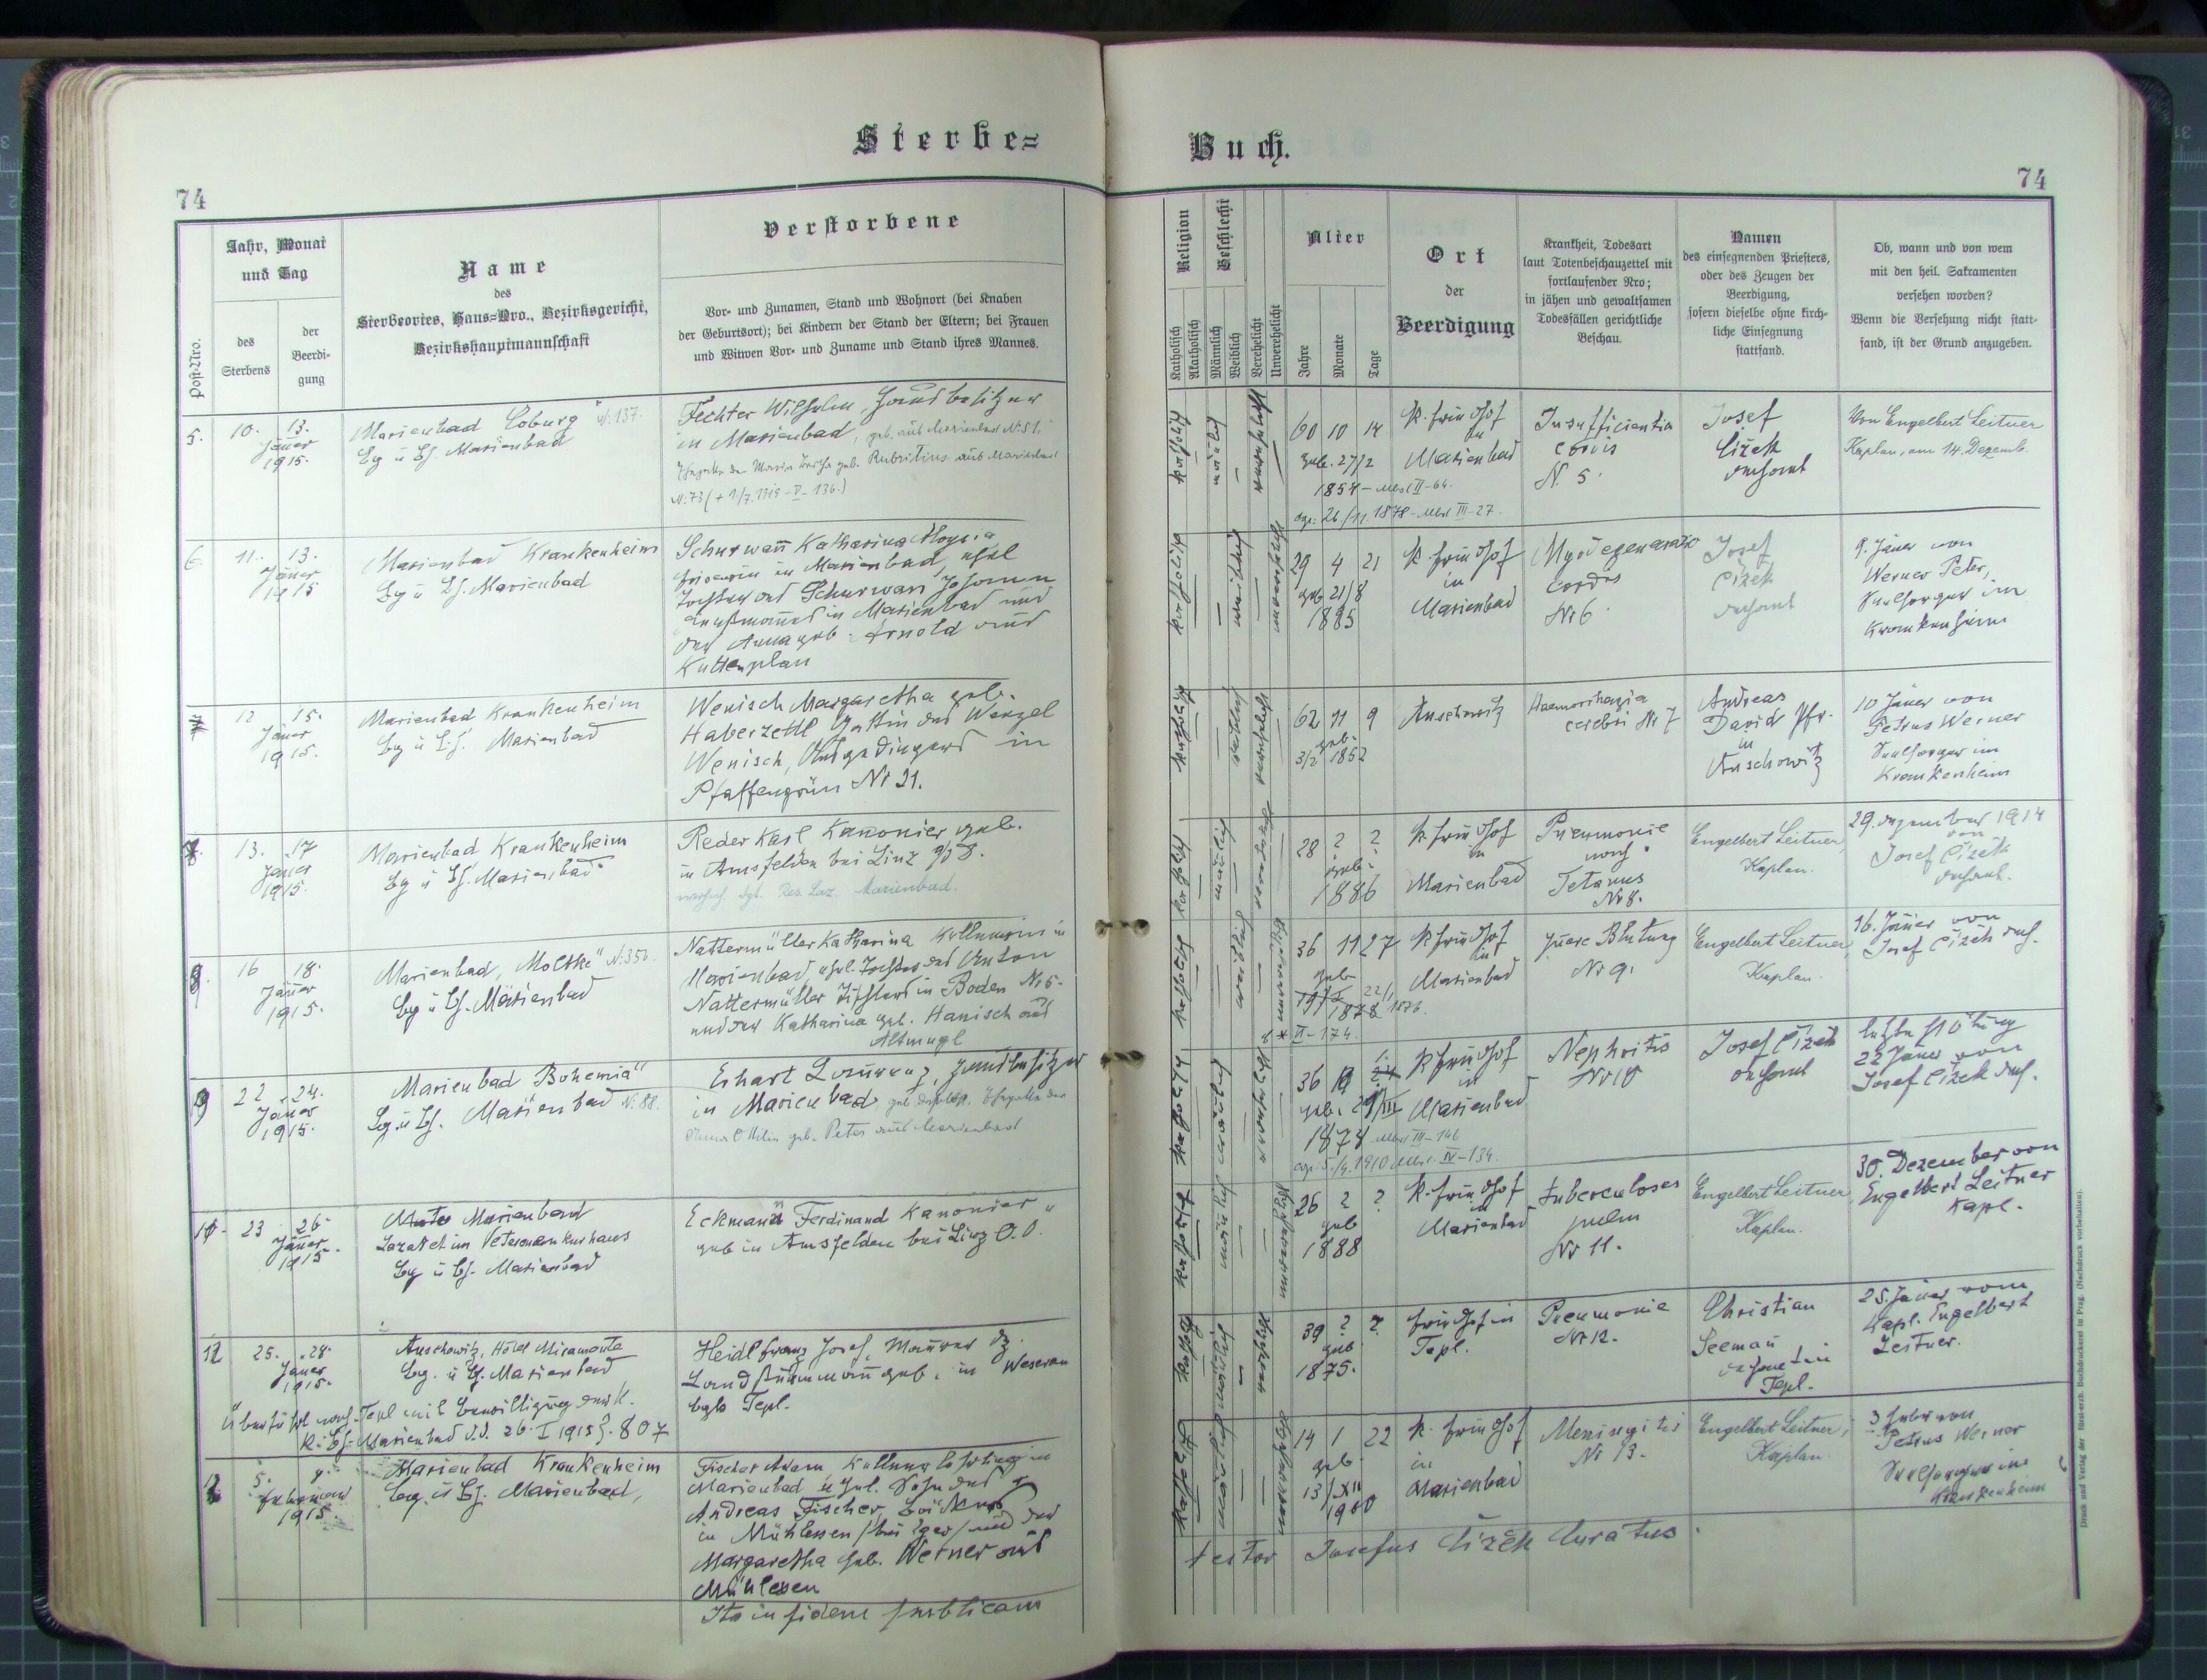 Sterbe=
Buch.
74
74
Post-Nro.
Jahr, Monat
und Tag
des
Sterbens
der
Beerdi-
gung
Name
des
Sterbeortes, Haus=Nro., Bezirksgericht,
Bezirkshauptmannschaft
Verstorbene
Vor- und Zunamen, Stand und Wohnort (bei Knaben
der Geburtsort); bei Kindern der Stand der Eltern; bei Frauen
und Witwen Vor- und Zuname und Stand ihres Mannes.
Religion
Katholisch
Akatholisch
Geschlecht
Männlich
Weiblich
Verehelicht
Unverehelicht
Alter
Jahre
Monate
Tage
Ort
der
Beerdigung
Krankheit, Todesart
laut Totenbeschauzettel mit
fortlaufender Nro;
in jähen und gewaltsamen
Todesfällen gerichtliche
Beschau.
Namen
des einsegnenden Priesters,
oder des Zeugen der
Beerdigung,
sofern dieselbe ohne kirch-
liche Einsegnung
stattfand.
Ob, wann und von wem
mit den heil. Sakramenten
versehen worden?
Wenn die Versehung nicht statt-
fand, ist der Grund anzugeben.
5. 10. 13.
Jänner
1915.
Marienbad Coburg N. 137.
Bg u Bh. Marienbad
Fechter Wilhelm, Hausbesitzer
in Marienbad, geb. aus Marienbad N. 51.
geb. Rubritius aus Marienbad
N. 73 (+ 1/7. 1919 - V - 136.)
katholisch
männlich
verehelicht
60 10 14
geb. 27/2
1854 - II - 64.
26/11. 1878 - III - 27.
K. Friedhof
in
Marienbad
Insufficientia
cordis
N. 5.
Josef
Čížek
Dechant
Von Engelbert Leitner
Kaplan, am 14. Dezemb.
6. 11. 13.
Jänner
1915
Marienbad Krankenheim
Bg u Bh. Marienbad
Schurwañ Katharina Aloysia
in Marienbad, ehel
Tochter des Schurwañ Johann
Kaufmannes in Marienbad und
der Anna geb. Arnold aus
Kuttenplan
katholisch
weiblich
unverehelicht
29 4 21
geb 21/8
1885
K. Friedhof
in
Marienbad
Myodegeneratio
cordis
Nr 6.
Josef
Čížek
Dechant
9. Jäner von
Werner Peter,
Seelsorger im
Krankenheim
7 12 15.
Jäner
1915.
Marienbad Krankenheim
Bg u Bh. Marienbad
Wenisch Margaretha geb.
Haberzettl Gattin des Wenzel
Wenisch, Ausgedingers in
Pfaffengrün Nr 21.
katholisch
weiblich
verehelicht
62 11 9
geb.
3/2 1852
Auschowitz
Haemorrhagia
cerebri Nr 7
Andreas
David Pfr.
in
Auschowitz
10 Jäner von
Petrus Werner
Seelsorger im
Krankenheim
13. 17
Jäner
1915.
Marienbad Krankenheim
Bg u Bh. Marienbad
Reder Karl Kanonier geb.
in Amsfelden bei Linz
Res. Laz. Marienbad.
katholisch
männlich
28 ? ?
geb.
1886
K Friedhof
in
Marienbad
Pneumonie
nach
Tetanus
Nr 8.
Engelbert Leitner,
Kaplan.
29. Dezember 1914
von
Josef Čížek
Dechant.
16 18.
Jäner
1915.
Marienbad, „Moltke“ N. 350.
Bg u Bh. Marienbad
Nattermüller Katharina Kellnerin in
Marienbad, ehel. Tochter des Anton
Nattermüller Tischlers in Boden Nr 5.
und der Katharina geb. Hanisch aus
Altmugl
katholisch
weiblich
unverehelicht
36 11 27
geb
1878 1876.
II - 174.
K Friedhof
in
Marienbad
Innere Blutung
Nr 9.
Engelbert Leitner,
Kaplan.
16. Jäner von
Josef Čížek Dech.
9 22 24.
Jäner
1915.
Marienbad Bohemia“
Bg u Bh. Marienbad N. 88.
Erhart Lorenz, Hausbesitzer
in Marienbad
geb. Peter aus Marienbad
katholisch
männlich
verehelicht
36
geb. 29/III
1878 III - 146
5./4. 1910 IV - 134.
K Friedhof
in
Marienbad
Nephritis
Nr 10
Josef Čížek
Dechant
letzte Ölung
22 Jäner von
Josef Čížek Dech.
23 26.
Jäner
1915.
Marienbad
Lazaret im Veteranenkurhaus
Bg u Bh. Marienbad
Eckmann Ferdinand Kanonier
geb in Amsfelden bei Linz O.Ö.
katholisch
männlich
unverehelicht
26 ? ?
geb
1888
K. Friedhof
in
Marienbad
Tuberculoses
pulm
Nr 11.
Engelbert Leitner,
Kaplan.
30. Dezember von
Engelbert Leitner
Kapl.
25. 28.
Jäner
1915.
Auschowitz, Hôtel Miramonte
Bg. u Bh. Marienbad
Überführt nach Tepl mit Bewilligung der K.
K. Bh. Marienbad d.d. 26. I 1915 Z. 807
Heidl Franz Josef, Maurer dz.
Landsturmmañ geb. in Weseran
Tepl.
katholisch
männlich
verehelicht
39 ? ?
geb
1875.
Friedhof in
Tepl.
Pneumonie
Nr 12.
Christian
Seemañ
Dechant in
Tepl.
25. Jäner vom
Kapl. Engelbert
Leitner.
5.
Februar
1915.
Marienbad Krankenheim
Bg. u Bh. Marienbad,
Fischer Adam Kellnerlehrling in
Marienbad ehel. Sohn des
Andreas Fischer, Bäckers
in Mühlessen /bei Eger/ und der
Margaretha geb. Werner aus
Mühlessen
katholisch
männlich
unverehelicht
14 1 22
geb
13/XII
1900
K. Friedhof
in
Marienbad
Meningitis
Nr 13.
Engelbert Leitner,
Kaplan.
3 Feber von
Petrus Werner
Seelsorger im
Krankenheim
Ita in fidem publicam
testor Josefus Čížek Curatus.
Druck und Verlag der fürst-erzb. Buchdruckerei in Prag. (Nachdruck vorbehalten).